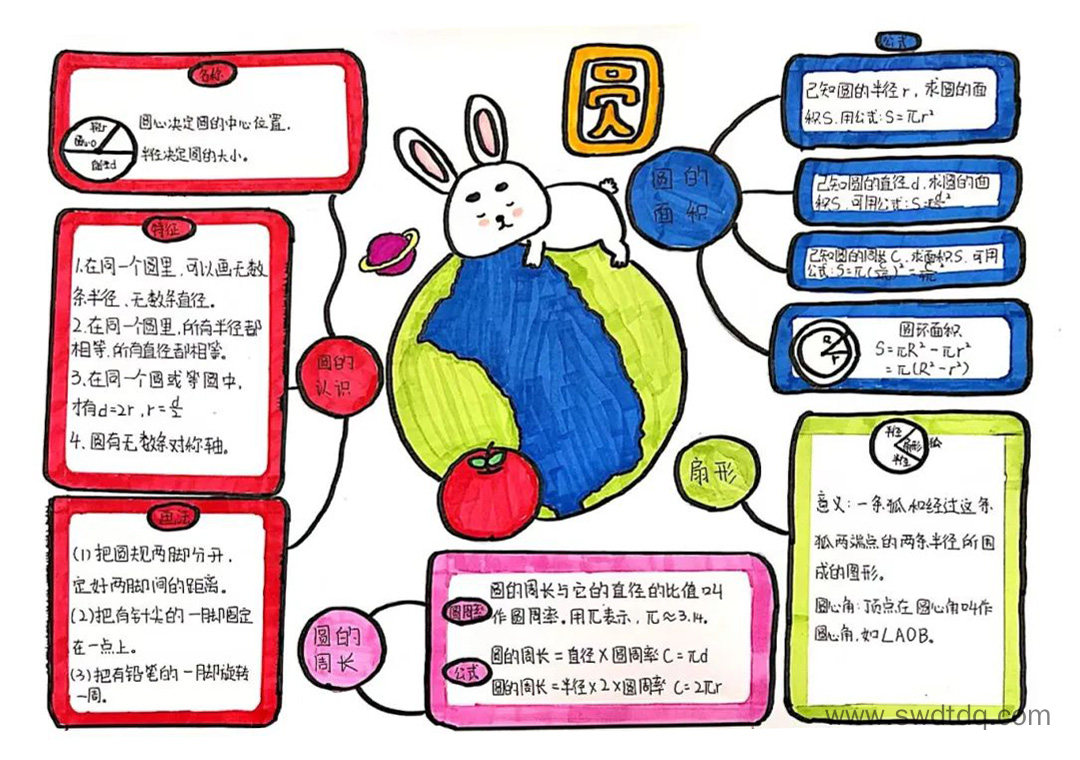 圆
名称
半径r
圆心O
直径d
圆心决定圆的中心位置，
半径决定圆的大小。
特征
1.在同一个圆里，可以画无数
条半径、无数条直径。
2.在同一个圆里，所有半径都
相等，所有直径都相等。
3.在同一个圆或等圆中，
有d=2r，r=d/2
4、圆有无数条对称轴。
圆的
认识
画法
(1)把圆规两脚分开，
定好两脚间的距离。
(2)把有针尖的一脚固定
在一点上。
(3)把有铅笔的一脚旋转
一周。
圆的
周长
圆周率
圆的周长与它的直径的比值叫
作圆周率。用π表示，π≈3.14。
公式
圆的周长=直径×圆周率 C=πd
圆的周长=半径×2×圆周率 C=2πr
圆的
面积
公式
已知圆的半径r，求圆的面
积S，用公式：S=πr²
已知圆的直径d，求圆的面
积S，可用公式：S
已知圆的周长C，求面积S，可用
公式：S=π(
R
r
圆环面积
S=πR²-πr²
=π(R²-r²)
扇形
半径
扇形
半径
意义：一条狐和经过这条
狐两端点的两条半径所围
成的图形。
圆心角：顶点在圆心角叫作
圆心角，如∠AOB。
www.swdtdq.com